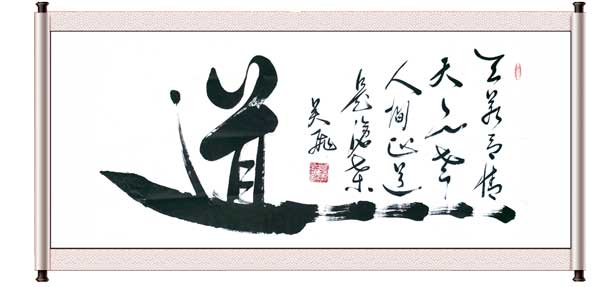 天若有情
天亦老
人间正道
是滄桑
道